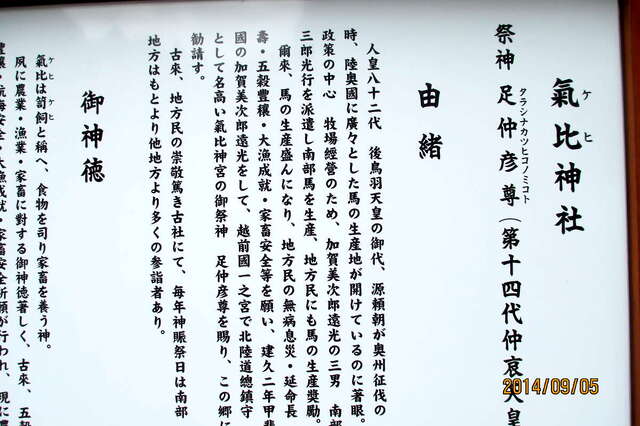 氣比神社
ケヒ
祭神 足仲彦尊（第十四代仲哀天皇
タラシナカツヒコノミコト
由緒
人皇八十二代 後鳥羽天皇の御代、源頼朝が奥州征伐の
時、陸奥國に廣々とした馬の生産地が開けているのに著眼。
政策の中心 牧場經営のため、加賀美次郎遠光の三男 南部
三郎光行を派遣し南部馬を生産、地方民にも馬の生産奨勵。
爾來、馬の生産盛んになり、地方民の無病息災・延命長
壽・五穀豐穰・大漁成就・家畜安全等を願い、建久二年甲斐
國の加賀美次郎遠光をして、越前國一之宮で北陸道總鎮守
として名高い氣比神宮の御祭神 足仲彦尊を賜り、この郷に
勧請す。
古来、地方民の崇敬篤き古社にて、毎年神賑祭日は南部
地方はもとより他地方より多くの参詣者あり。
御神徳
氣比は笥飼と稱へ、食物を司り家畜を養う神。
ケヒ ケヒ
夙に農業・漁業・家畜に対する御神徳著しく、古來、五穀
豐穰・航海安全・大漁成就・家畜安全祈願が行われ、現に農
2014/09/05